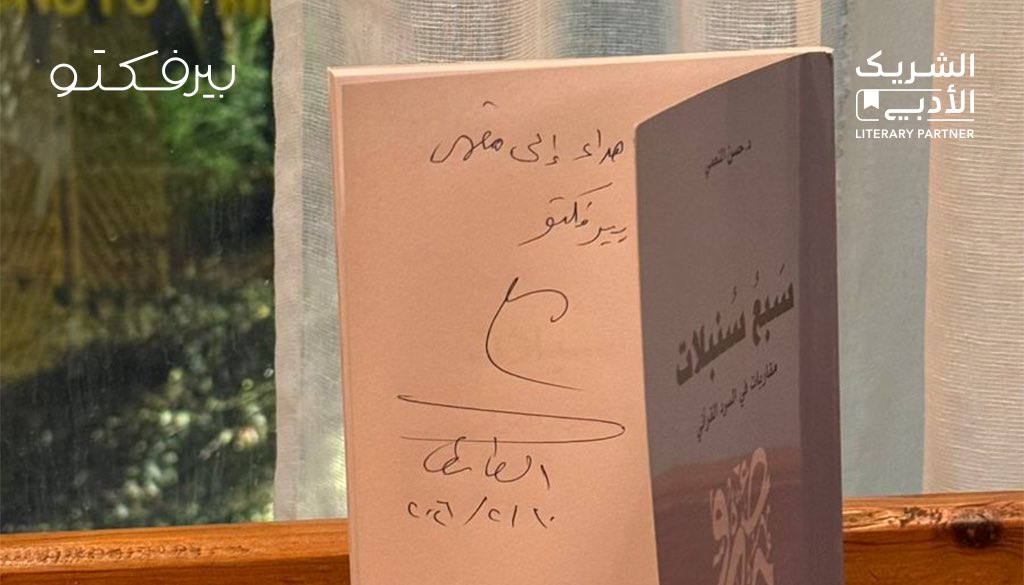 بيرفكتو
الشريك
الأدبي
LITERARY PARTNER
هداء إلى مقهى
بيرفكتو
الطائف
د. حسن النعمي
سَبعُ سُنبلات
مقاربات في السرد القرآني